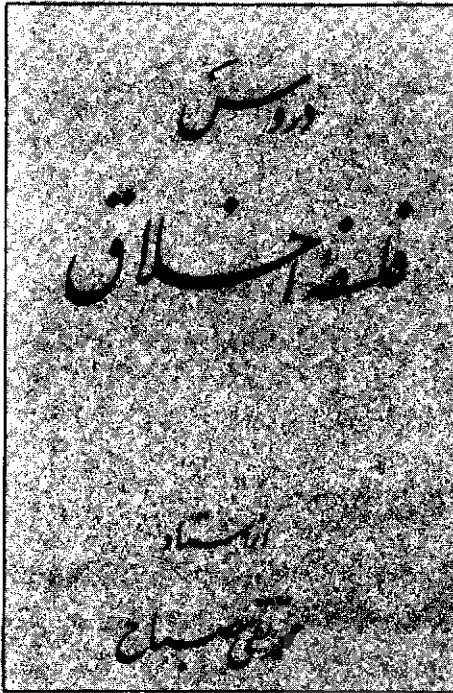 دروس
فلسفهٔ اخلاق
از استاد
محمد تقی مصباح